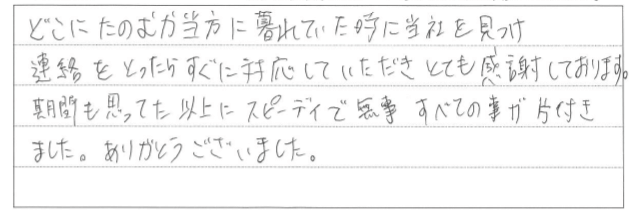 どこにたのむか当方に暮れていた時に当社を見つけ
連絡をとったらすぐに対応していただきとても感謝しております。
期間も思ってた以上にスピーディで無事すべての事が片付き
ました。ありがとうございました。